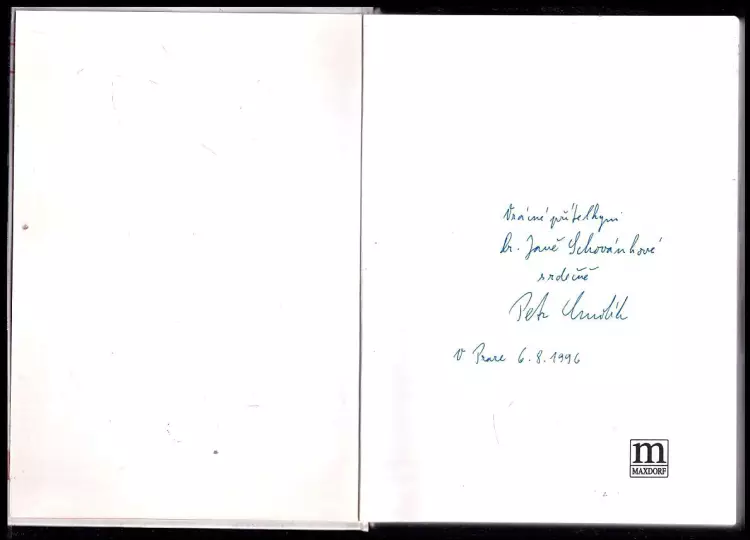 Vzácné přítelkyni
Dr. Janě Schovánkové
srdečně
Petr
V Praze 6.8.1996
m
MAXDORF